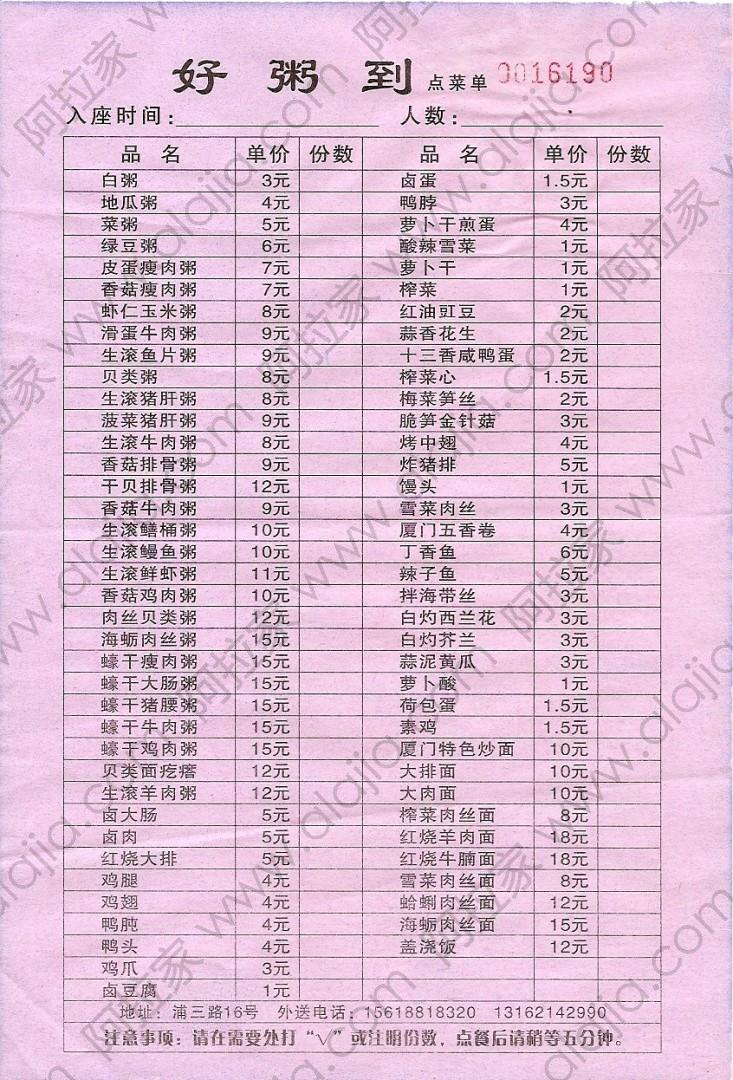 好粥到 点菜单 0016190
入座时间: 人数:
品名 单价 份数 品名 单价 份数
白粥 3元 卤蛋 1.5元
地瓜粥 4元 鸭脖 3元
菜粥 5元 萝卜干煎蛋 4元
绿豆粥 6元 酸辣雪菜 1元
皮蛋瘦肉粥 7元 萝卜干 1元
香菇瘦肉粥 7元 榨菜 1元
虾仁玉米粥 8元 红油豇豆 2元
滑蛋牛肉粥 9元 蒜香花生 2元
生滚鱼片粥 9元 十三香咸鸭蛋 2元
贝类粥 8元 榨菜心 1.5元
生滚猪肝粥 8元 梅菜笋丝 2元
菠菜猪肝粥 9元 脆笋金针菇 3元
生滚牛肉粥 8元 烤中翅 4元
香菇排骨粥 9元 炸猪排 5元
干贝排骨粥 12元 馒头 1元
香菇牛肉粥 9元 雪菜肉丝 3元
生滚鳝桶粥 10元 厦门五香卷 4元
生滚鳗鱼粥 10元 丁香鱼 6元
生滚鲜虾粥 11元 辣子鱼 5元
香菇鸡肉粥 10元 拌海带丝 3元
肉丝贝类粥 12元 白灼西兰花 3元
海蛎肉丝粥 15元 白灼芥兰 3元
蠔干瘦肉粥 15元 蒜泥黄瓜 3元
蠔干大肠粥 15元 萝卜酸 1元
蠔干猪腰粥 15元 荷包蛋 1.5元
蠔干牛肉粥 15元 素鸡 1.5元
蠔干鸡肉粥 15元 厦门特色炒面 10元
贝类面疙瘩 12元 大排面 10元
生滚羊肉粥 12元 大肉面 10元
卤大肠 5元 榨菜肉丝面 8元
卤肉 5元 红烧羊肉面 18元
红烧大排 5元 红烧牛腩面 18元
鸡腿 4元 雪菜肉丝面 8元
鸡翅 4元 蛤蜊肉丝面 12元
鸭肫 4元 海蛎肉丝面 15元
鸭头 4元 盖浇饭 12元
鸡爪 3元
卤豆腐 1元
地址: 浦三路16号 外送电话: 15618818320 13162142990
注意事项: 请在需要处打“√”或注明份数, 点餐后请稍等五分钟。
阿拉家 www.alajia.com